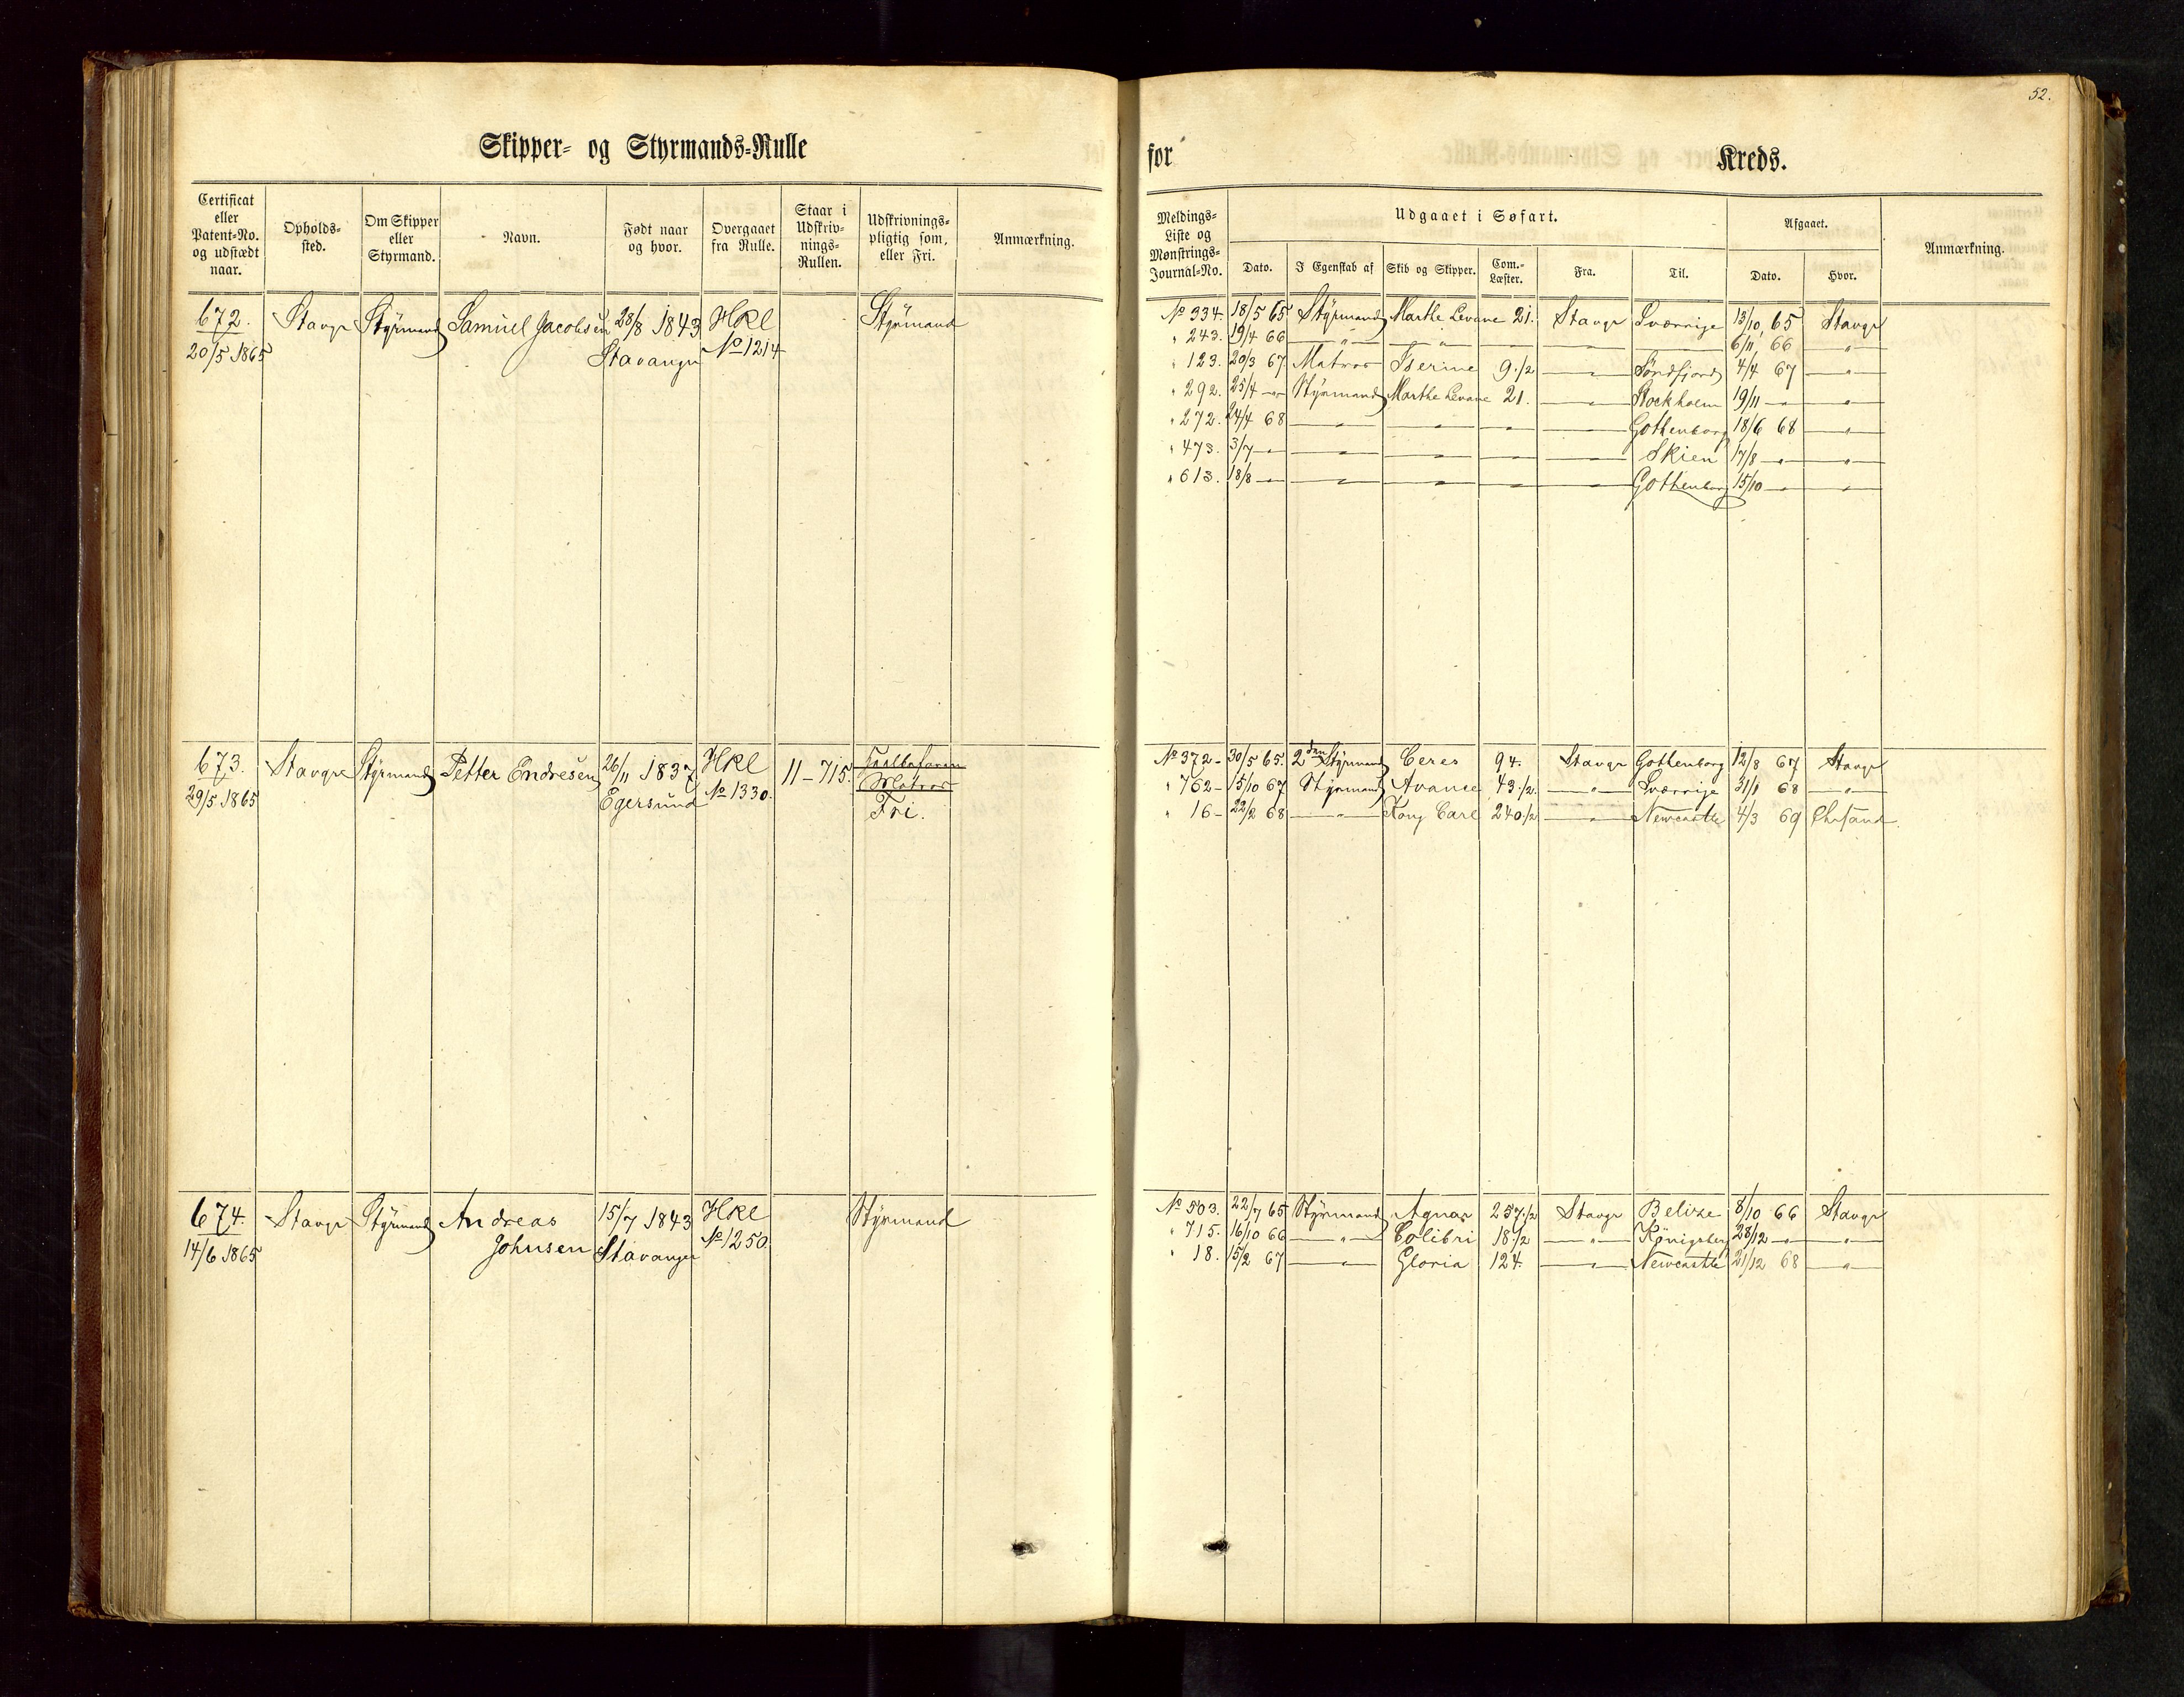 52.
Skipper- og Styrmands-Rulle
for
Kreds.
Certificat eller Patent-No. og udstædt naar.
Opholds-sted.
Om Skipper eller Styrmand.
Navn.
Født naar og hvor.
Overgaaet fra Rulle.
Staar i Udskriv-nings-Rullen.
Udskrivnings-pligtig som, eller Fri.
Anmærkning.
Meldings-Liste og Mønstrings-Journal-No.
Udgaaet i Søfart.
Dato. I Egenskab af Skib og Skipper. Com.-Læster. Fra. Til.
Afgaaet.
Dato. Hvor.
Anmærkning.
672. Stavgr Styrmand Samuel Jacobsen 28/8 1843 Hkl Styrmand
20/5 1865 Stavanger No 1214
No 334 18/5 65 Styrmand Marthe Levane 21. Stavgr Sværrige 13/10 65 Stavgr
" 243. 19/4 66 — " — — " — — — 6/11 66 — " —
" 123. 20/3 67. Matros Iserine 9 1/2 — " — Søndfjord 4/4 67 — " —
" 292. 25/4 — " — Styrmand Marthe Levane 21. — " — Stockholm 19/11 — " — — " —
" 272. 24/4 68 — " — — " — — " — — " — Gothenborg 18/6 68 — " —
" 473. 3/7 — " — — " — — " — — " — — " — Skien 17/8 — " — — " —
" 613. 18/8 — " — — " — — " — — " — — " — Gothenborg 15/10 — " — — " —
673. Stavgr Styrmand Petter Endresen 26/11 1837 Hkl 11–715.
29/5 1865 Egersund No 1330. Matros
Fri.
No 372 - 30/5 65. 2den Styrmand Ceres 94. Stavgr Gothenborg 12/8 67 Stavgr
" 762 - 15/10 67 Styrmand Avance 43 1/2. — " — Sværrige 31/1 68 — " —
" 16 - 22/2 68 — " — Kong Carl 240 1/2 — " — Newcastle 4/3 69 Chrsand
674. Stavgr Styrmand Andreas 15/7 1843 Hkl Styrmand
14/6 1865 Johnsen Stavanger No 1250.
No 503. 22/7 65 Styrmand Agnar 257 1/2 Stavgr Belize 8/10 66 Stavgr
" 715. 16/10 66 — " — Colibri 18 1/2 — " — Königsberg 28/12 — " — — " —
" 18. 15/2 67 — " — Gloria 124. — " — Newcastle 21/12 68 — " —